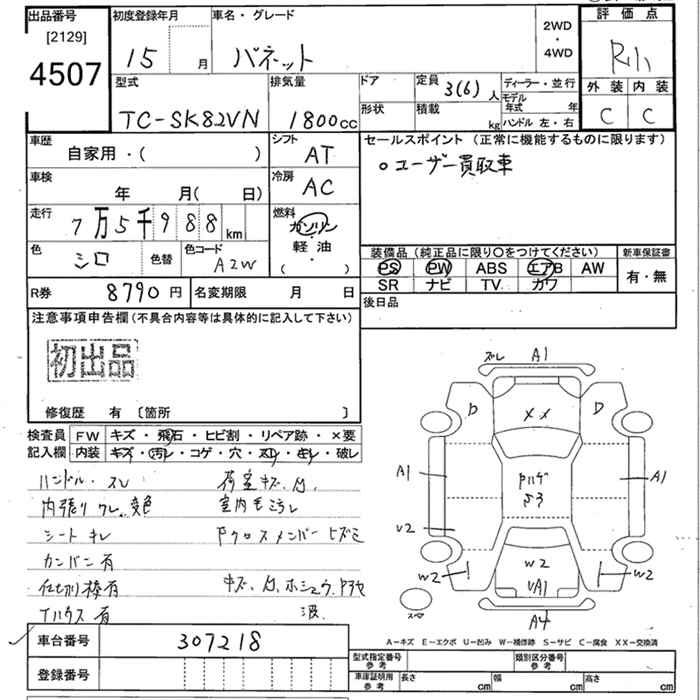 出品番号
[2129]
4507
初度登録年月
15 月
車名・グレード
バネット
2WD
・
4WD
評価点
外装 内装
C C
型式
TC-SK82VN
排気量
1800cc
ドア
形状
定員
3(6)人
積載
kg
ディーラー・並行
モデル
年式 年
ハンドル 左・右
車歴
自家用・( )
シフト
AT
セールスポイント (正常に機能するものに限ります)
○ユーザー買取車
車検
年 月( 日)
冷房
AC
走行
7万5千988km
燃料
ガソリン
軽・油
( ・ )
色
シロ
色替
色コード
A2W
装備品 (純正品に限り○をつけてください)
PS PW ABS エアB AW
SR ナビ TV カワ
新車保証書
有・無
R券
8790円
名変期限 月 日
後日品
注意事項申告欄 (不具合内容等は具体的に記入して下さい)
初出品
修復歴 有 〔箇所 〕
検査員
記入欄
FW キズ・飛石・ヒビ割・リペア跡・×要
内装 キズ・汚レ・コゲ・穴・スレ・キレ・破レ
ハンドル・スレ
荷室キズ、凹
内張り ワレ、変色
室内毛汚レ
シートキレ
Fクロスメンバーヒズミ
カンバン有
仕切り棒有
有
車台番号
307218
登録番号
ズレ A1
D D
××
A1 A1
U2
W2 W2 W2
UA1
スペ
A4
A-キズ E-エクボ U-凹み W-補修跡 S-サビ C-腐食 XX-交換済
型式指定番号
参考
類別区分番号
参考
車庫証明用
参考
長さ cm 幅 cm 高さ cm